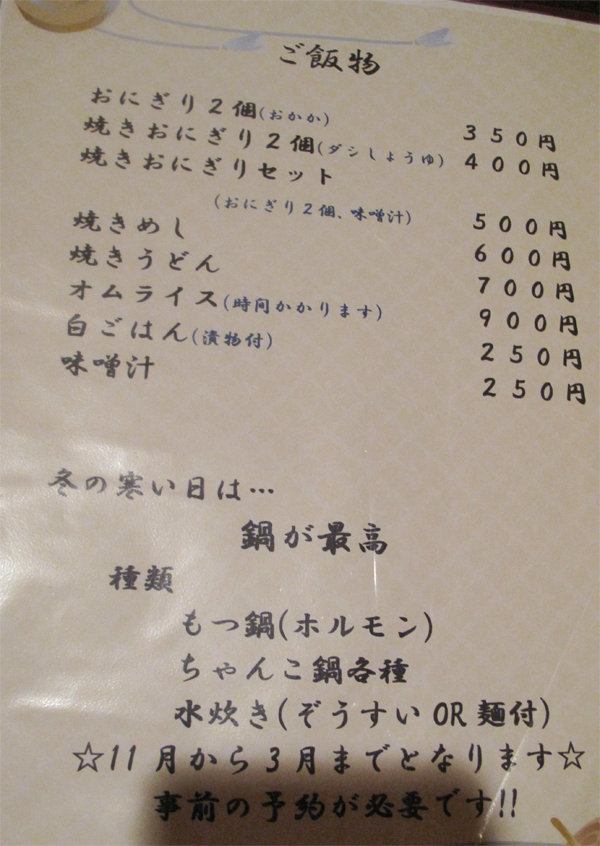 ご飯物
おにぎり２個(おかか) ３５０円
焼きおにぎり２個(ダシしょうゆ) ４００円
焼きおにぎりセット
(おにぎり２個、味噌汁) ５００円
焼きめし ６００円
焼きうどん ７００円
オムライス(時間かかります) ９００円
白ごはん(漬物付) ２５０円
味噌汁 ２５０円
冬の寒い日は…
鍋が最高
種類
もつ鍋(ホルモン)
ちゃんこ鍋各種
水炊き(ぞうすいOR麺付)
☆11月から３月までとなります☆
事前の予約が必要です!!